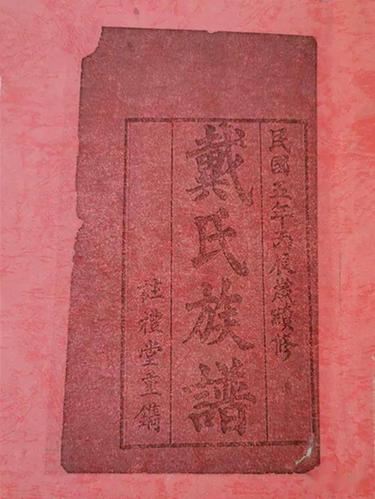 民國五年丙辰歲續修
戴氏族譜
註禮堂重鐫